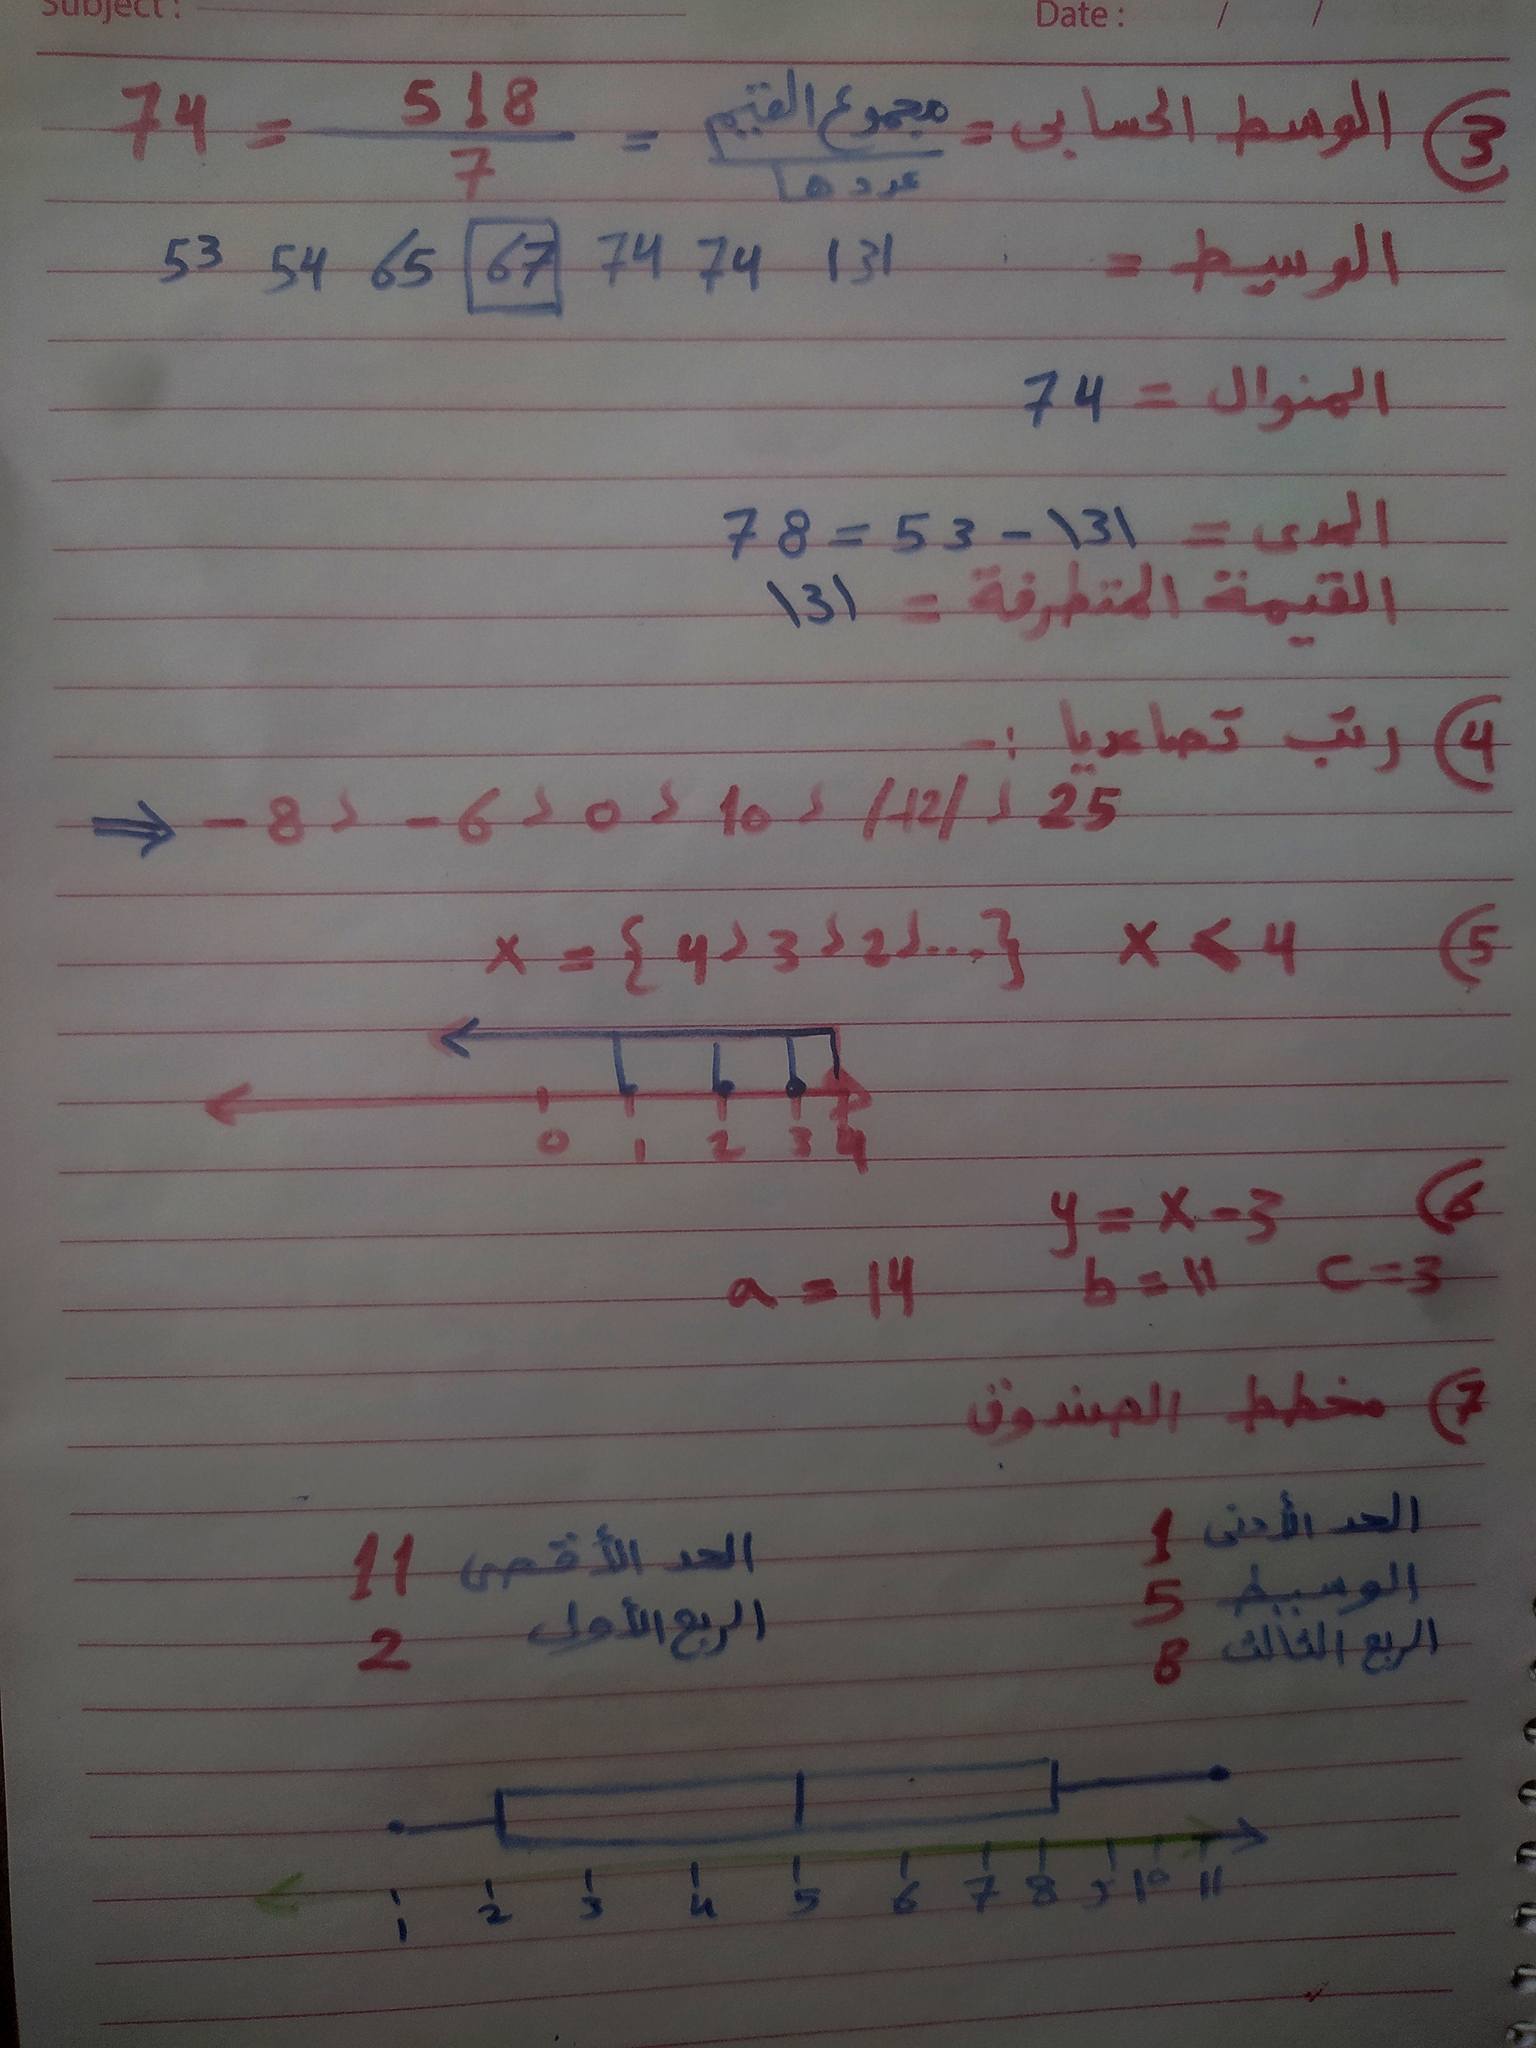 Subject : Date : / /
3 الوسط الحسابي = مجموع القيم / عددها = 518 / 7 = 74
الوسيط = 53 54 65 67 74 74 131
المنوال = 74
المدى = 131 - 53 = 78
القيمة المتطرفة = 131
4 رتب تصاعديا :-
⇒ -8 , -6 , 0 , 10 , /-12/ , 25
5 x < 4 x = {4,3,2,...}
0 1 2 3 4
6 y = x - 3
a = 14 b = 11 c = 3
7 مخطط الصندوق
الحد الأدنى 1 الحد الأقصى 11
الوسيط 5 الربع الأول 2
الربع الثالث 8
1 2 3 4 5 6 7 8 9 10 11